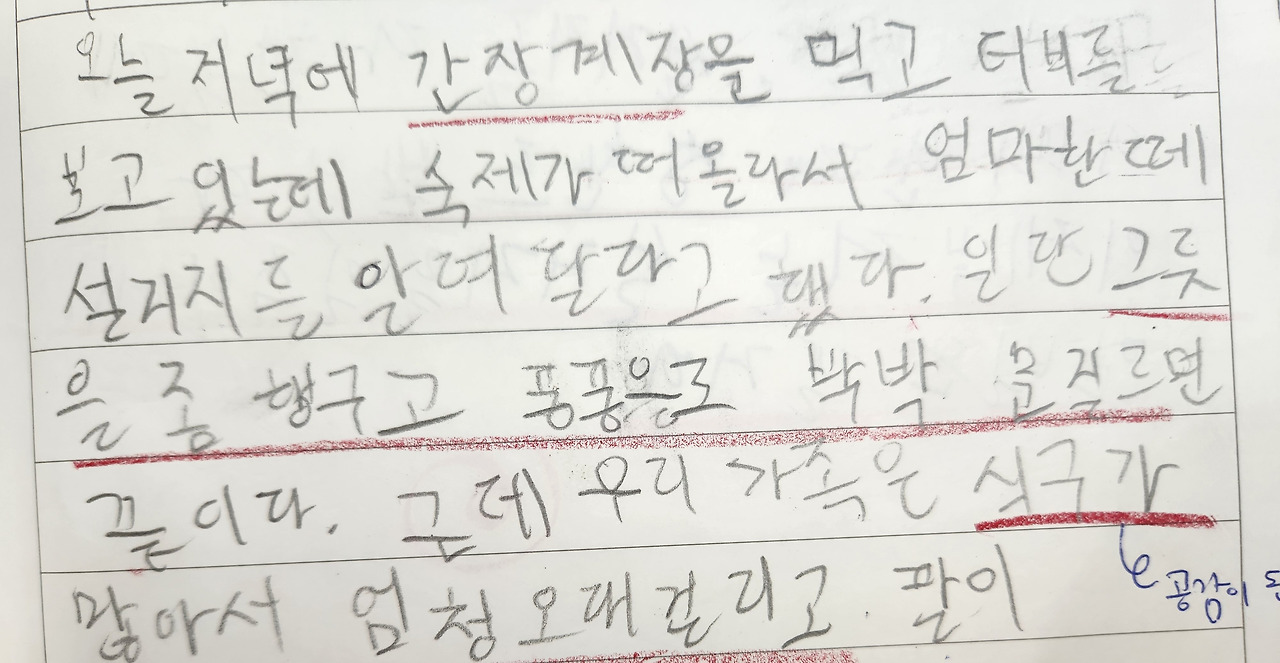 오늘 저녁에 간장계장물 먹고 터비를
보고 있는데 숙제가 떠올라서 엄마한떼
설거지를 알여 달라고 했다. 일단 그릇
을 좀 행구고 풍풍으로 박박 문질르면
끝이다. 근데 우리 가족은 식구가
많아서 엄청 오래걸리고. 팔이
공감이 된